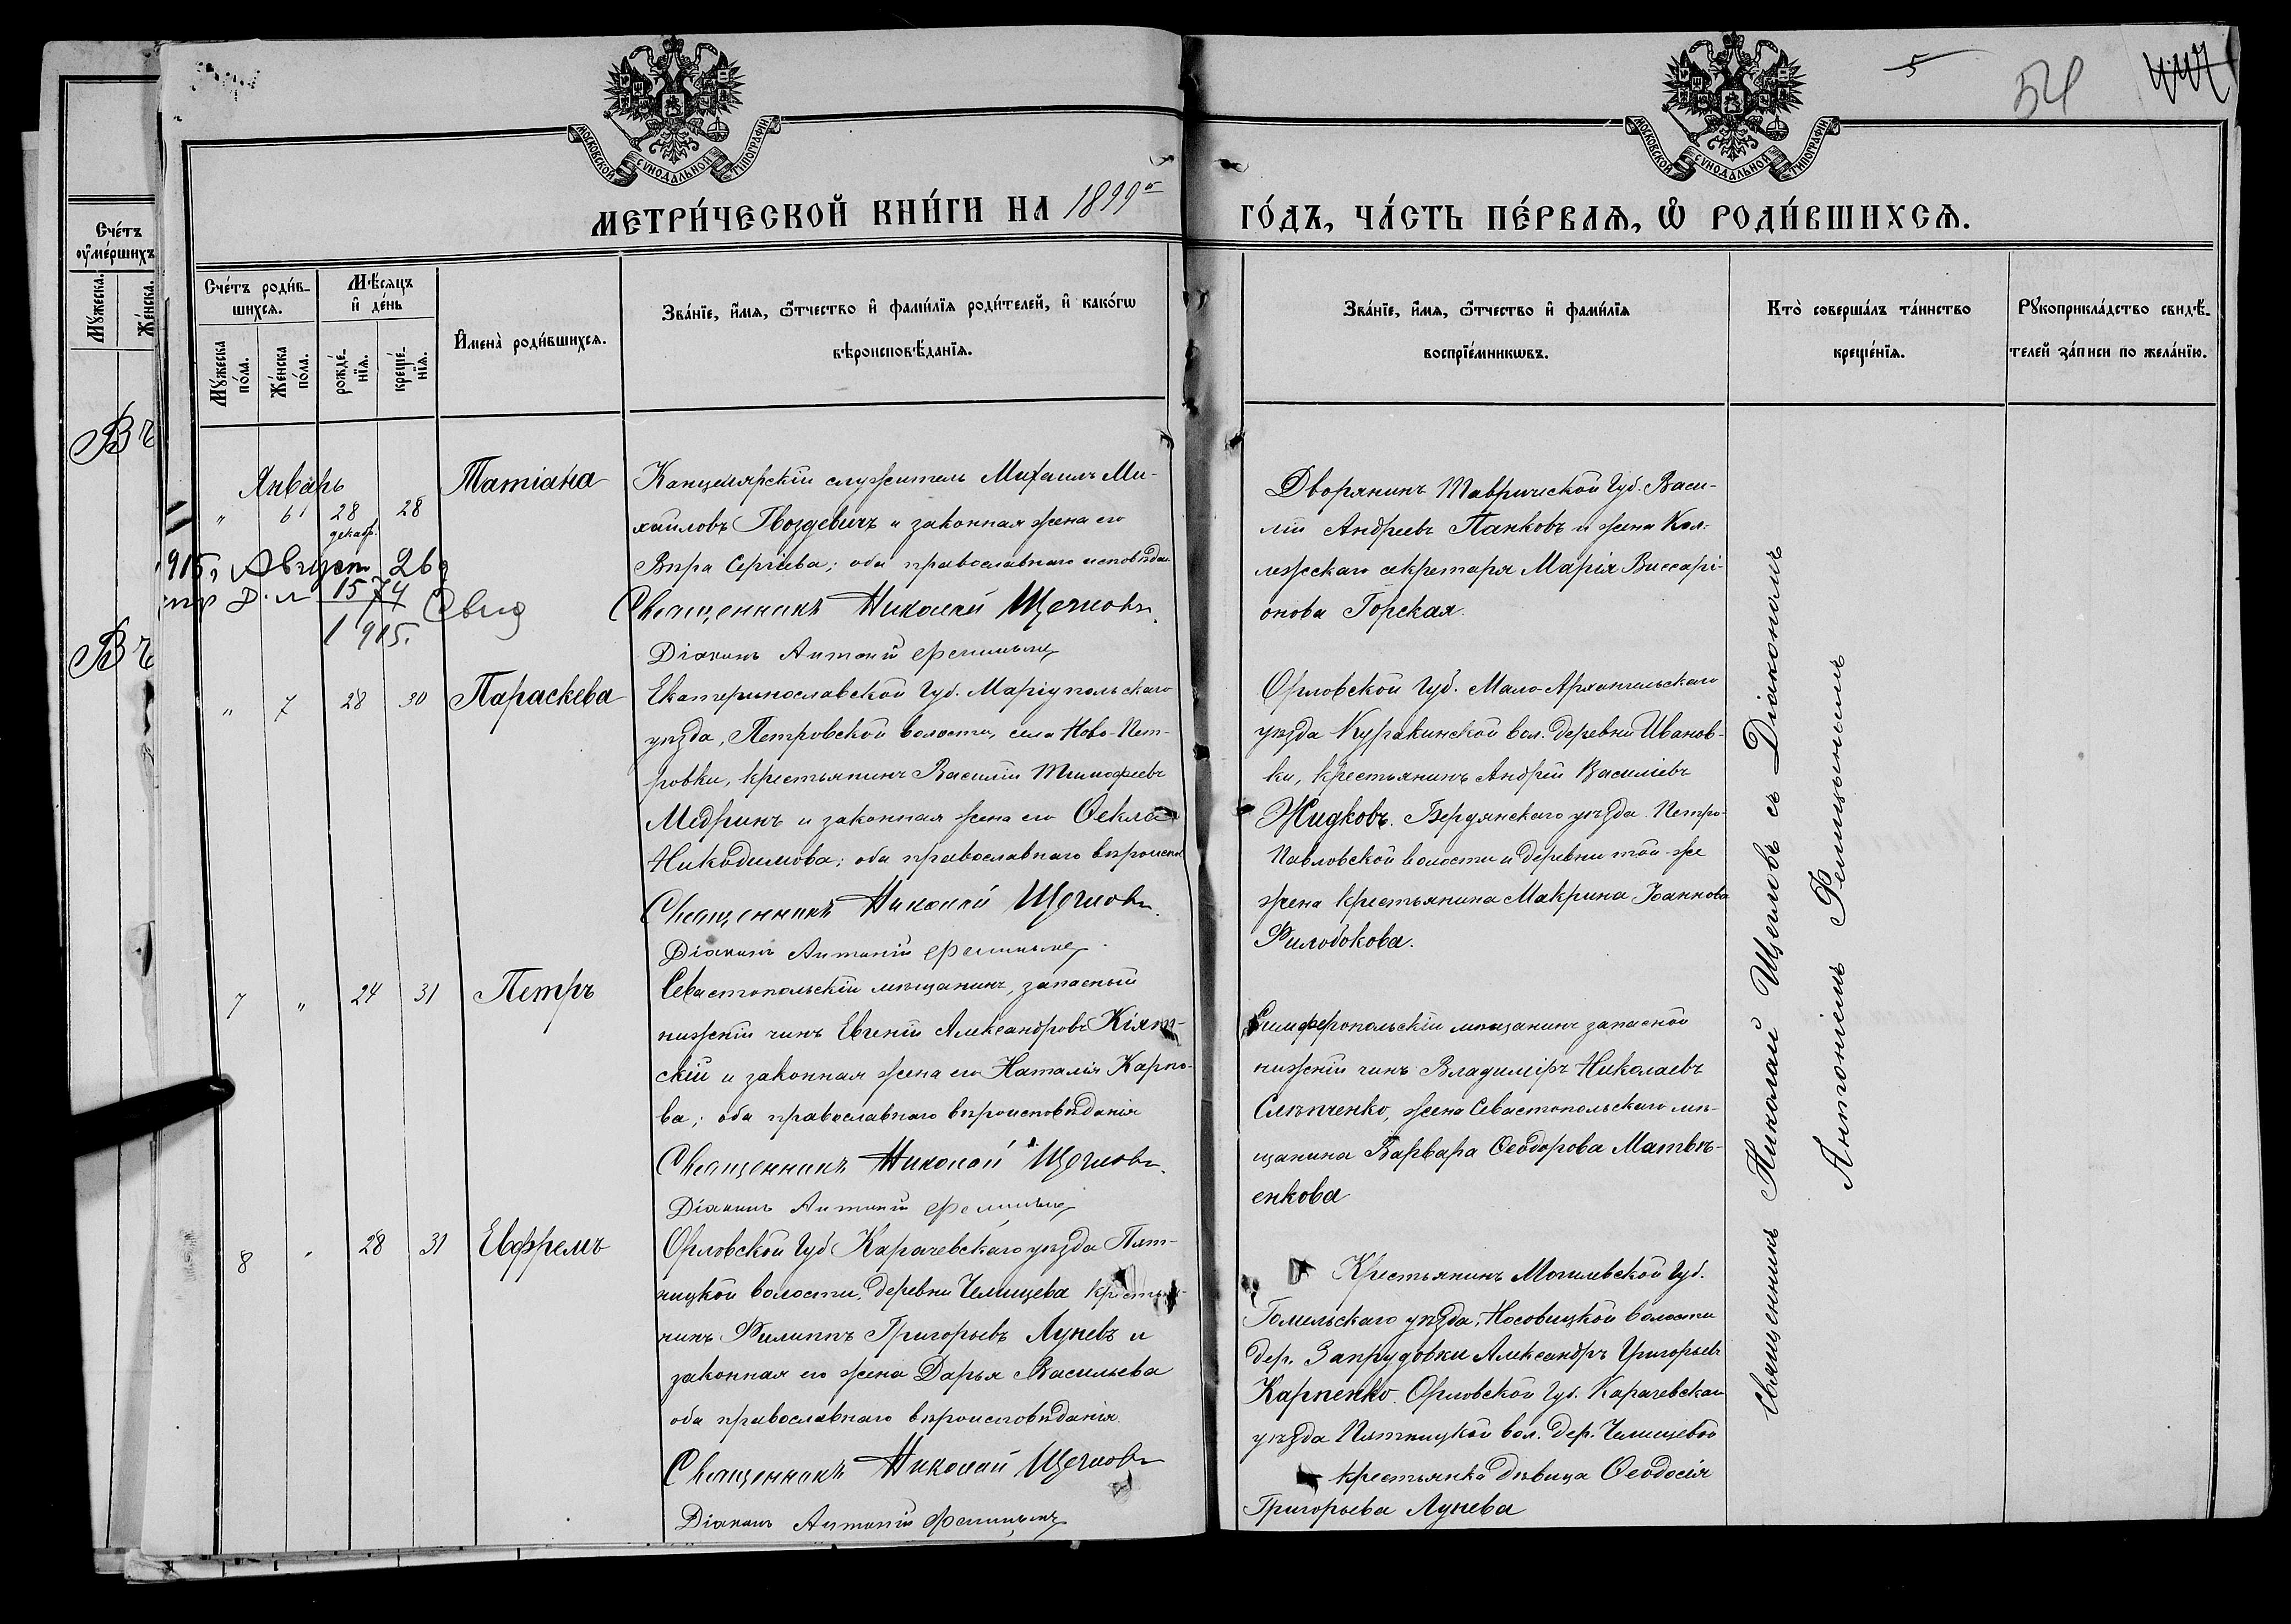 5
54
МОСКОВСКОЙ СѴНОДАЛЬНОЙ ТИПОГРАФІИ
МОСКОВСКОЙ СѴНОДАЛЬНОЙ ТИПОГРАФІИ
МЕТРИ́ЧЕСКОЙ КНИ́ГИ НА 1899й
ГО́ДЪ, ЧА́СТЬ ПЕ́РВАѦ, Ѽ РОДИ́ВШИХСѦ.
Сче́тъ
оу҆ме́ршихъ
Мꙋ́жеска.
Же́нска.
Въ
Въ
Сче́тъ роди́в-
шихсѧ.
Мꙋ́жеска
по́ла.
Же́нска
по́ла.
Мѣ́сяцъ
и҆ де́нь
рожде́-
нїѧ.
креще́-
нїѧ.
И҆мена̀ роди́вшихсѧ.
Зва́нїе, и҆́мѧ, ѻ҆́тчество и҆ фами́лїѧ роди́телей, и҆ како́гѡ
вѣроисповѣ́данїѧ.
Зва́нїе, и҆́мѧ, ѻ҆́тчество и҆ фами́лїѧ
воспрїе́мникѡвъ.
Кто̀ соверша́лъ та́инство
креще́нїѧ.
Рꙋкоприкла́дство свидѣ́-
телей за́писи по жела́нїю.
Январь
" 6 28 28
декабр.
Татіана
Канцелярскій служитель Михаилъ Ми-
хайловъ Гвоздевичъ и законная жена его
Вѣра Сергіева; оба православнаго исповѣдан
Священникъ Николай Щегловъ.
Діаконъ Антоній Фелицынъ
915 г. Август 26 д
15 74
1915.
Свид
Дворянинъ Таврической Губ. Васи-
лій Андреевъ Панковъ и жена Кол-
лежскаго секретаря Марія Виссарі-
онова Горская.
" 7 28 30
Параскева
Екатеринославской Губ. Маріупольскаго
уѣзда, Петровской волости, села Ново-Пет-
ровки, крестьянинъ Василій Тимофеевъ
Медринъ и законная жена его Ѳекла
Никодимова; оба православнаго вѣроиспов
Священникъ Николай Щегловъ.
Діаконъ Антоній Фелицынъ
Орловской Губ. Мало-Архангельскаго
уѣзда Куракинской вол. деревни Иванов-
ки, крестьянинъ Андрей Василіевъ
Жидковъ. Бердянскаго уѣзда Петро-
Павловской волости и деревни той-же
жена крестьянина Макрина Іоаннова
Филобокова.
7 " 24 31
Петръ
Севастопольскій мѣщанинъ, запасный
нижній чинъ Евгеній Александровъ Кіят-
скій и законная жена его Наталія Карпо-
ва; оба православнаго вѣроисповѣданія
Священникъ Николай Щегловъ.
Діаконъ Антоній Фелицынъ
Симферопольскій мѣщанинъ запасной
нижній чинъ Владиміръ Николаевъ
Слѣпченко, жена Севастопольскаго мѣ-
щанина Варвара Ѳеодорова Матвѣ-
енкова
8 " 28 31
Ефремъ
Орловской Губ Карачевскаго уѣзда Пят-
ницкой волости, деревни Челищева крестья-
нинъ Филиппъ Григорьевъ Луневъ и
законная его жена Дарья Васильева
оба православнаго вѣроисповѣданія.
Священникъ Николай Щегловъ
Діаконъ Антоній Фелицынъ
Крестьянинъ Могилевской Губ.
Гомельскаго уѣзда, Носовицкой волости
дер. Запрудовки Александръ Григорьевъ
Карпенко. Орловской Губ. Карачевскаго
уѣзда Пятницкой вол. дер. Челищевой
крестьянка дѣвица Ѳеодосія
Григорьева Лунева
Священникъ Николай Щегловъ съ Діакономъ
Антоніемъ Фелицынымъ